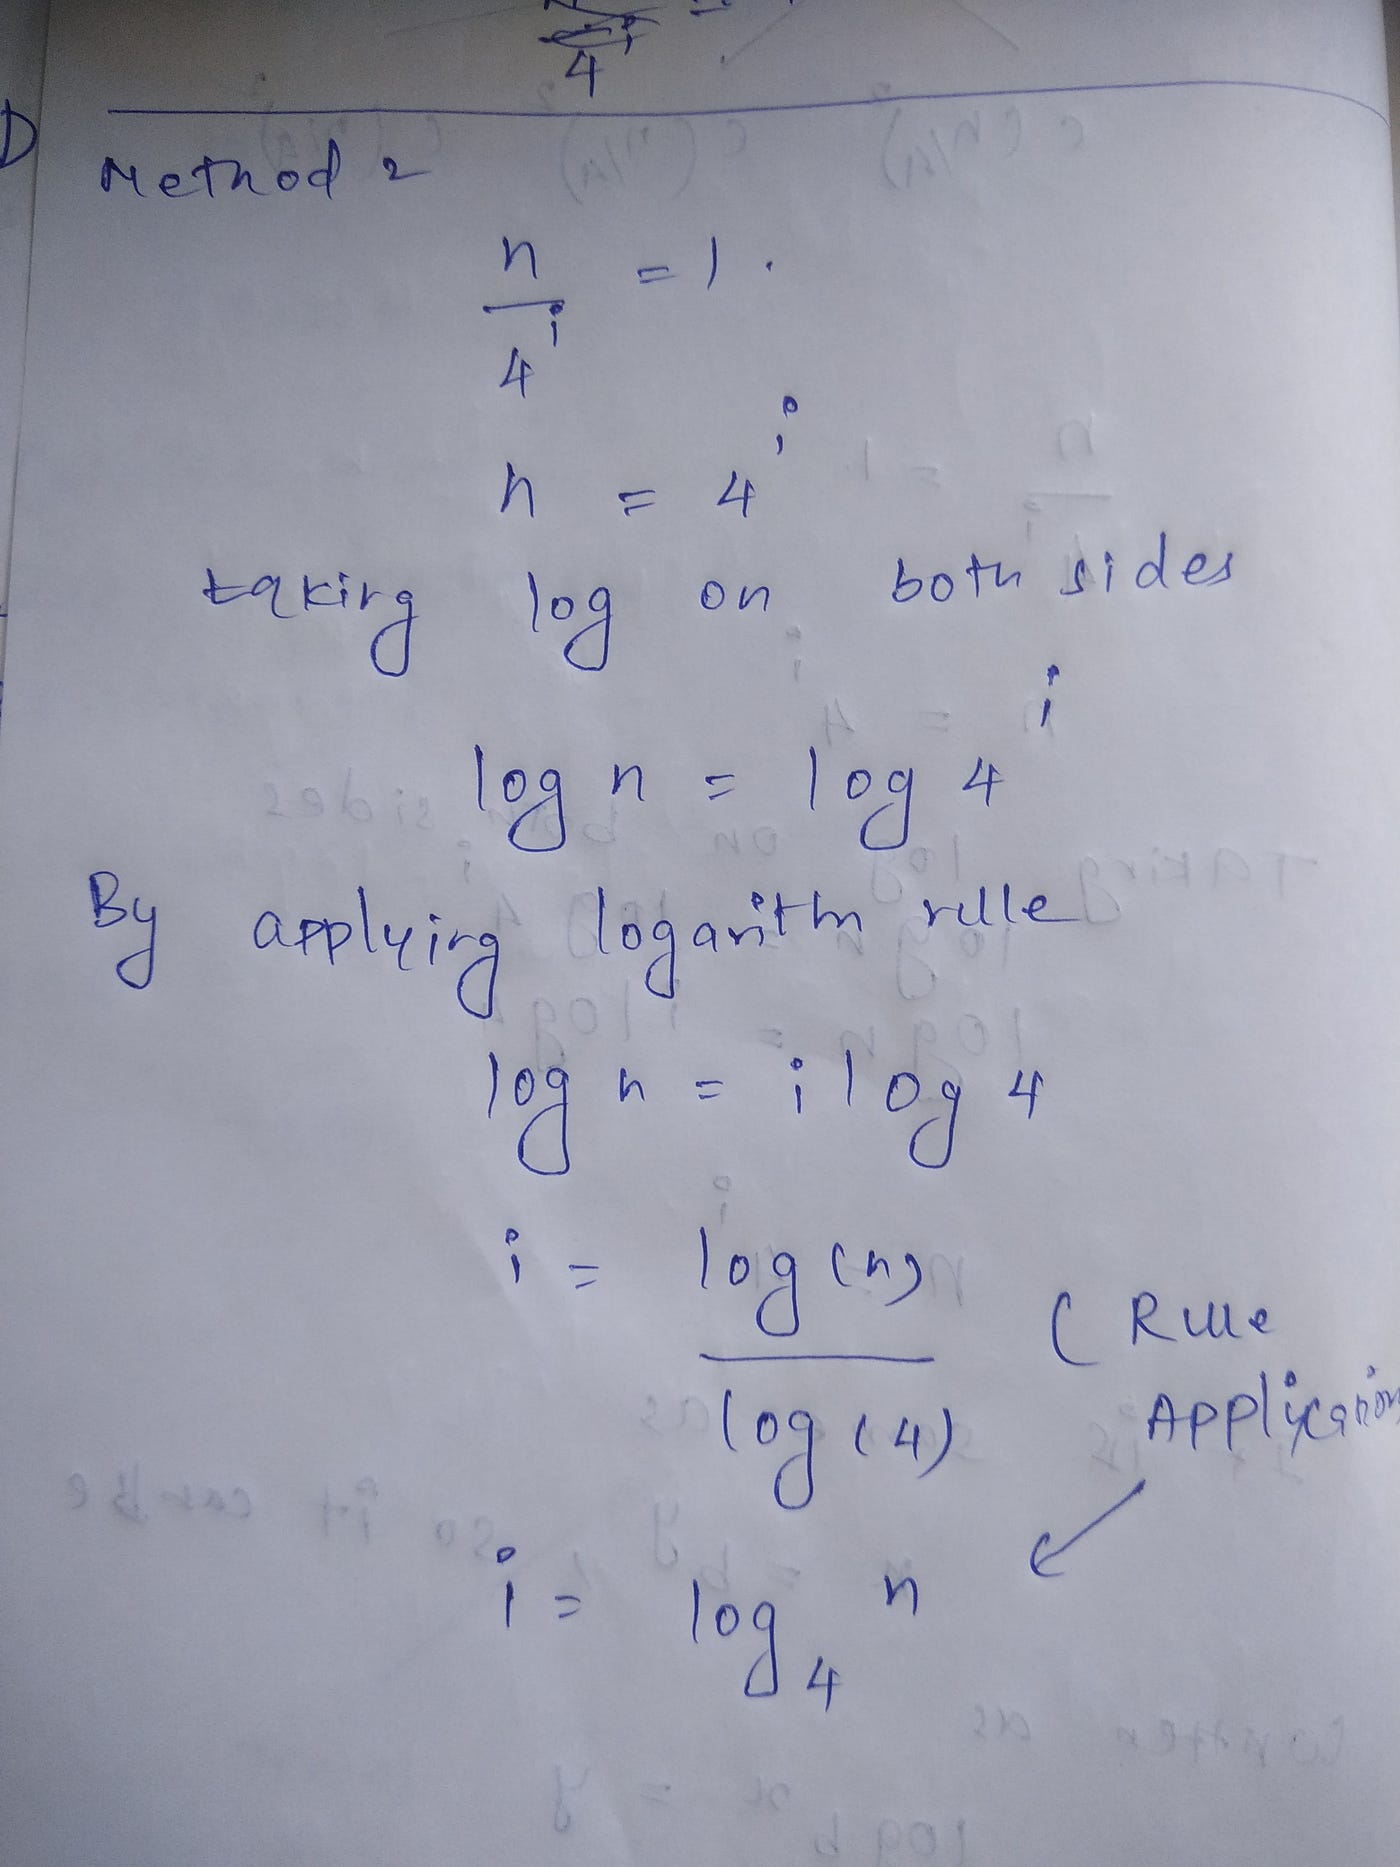 4
Method 2
n/4^i = 1.
n = 4^i
taking log on both sides
log n = log 4^i
By applying logarithm rule
log n = i log 4
i = log(n) / log(4) ( Rule Application
i = log_4 n